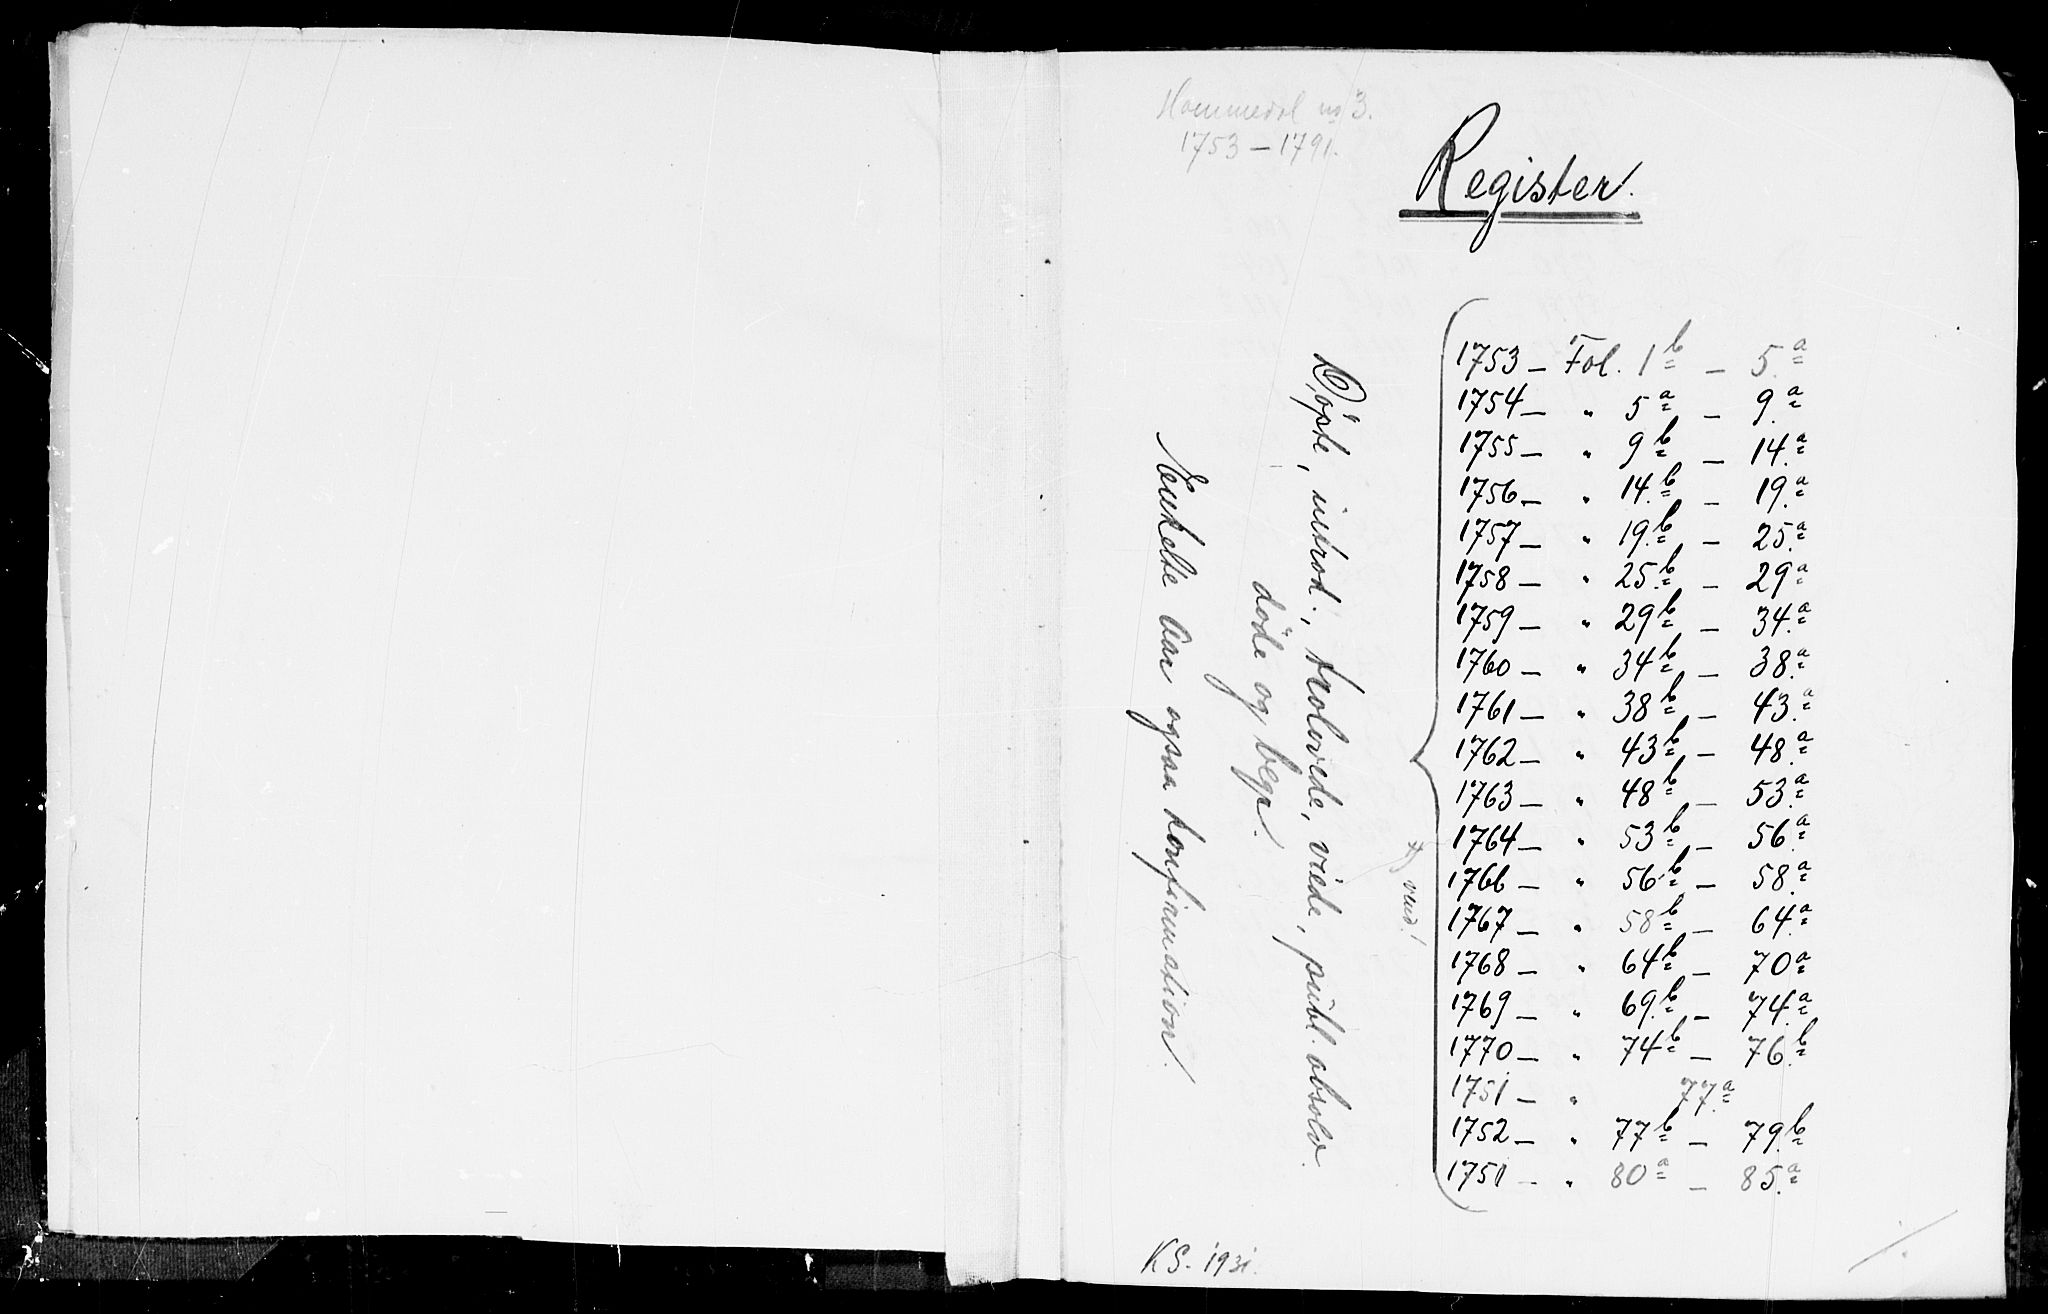 Hommedal no 3.
1753 – 1791.
Register.
Døpte, introd., trolovede, viede, publ. absolv.
døde og begr.
Enkelte Aar ogsaa konfirmation.
vend!
1753 – Fol. 1b – 5.a
1754 – " 5a – 9.a
1755 – " 9b – 14.a
1756 – " 14.b – 19.a
1757 – " 19.b – 25.a
1758 – " 25.b – 29a
1759 – " 29b – 34.a
1760 – " 34b – 38.a
1761 – " 38b – 43.a
1762 – " 43b – 48.a
1763 – " 48b – 53.a
1764 – " 53b – 56.a
1766 – " 56b – 58.a
1767 – " 58b – 64.a
1768 – " 64b – 70a
1769 – " 69.b – 74.a
1770 – " 74b – 76.b
1751 – " 77.a
1752 – " 77b – 79.b
1751 – " 80a – 85.a
KS. 1931.